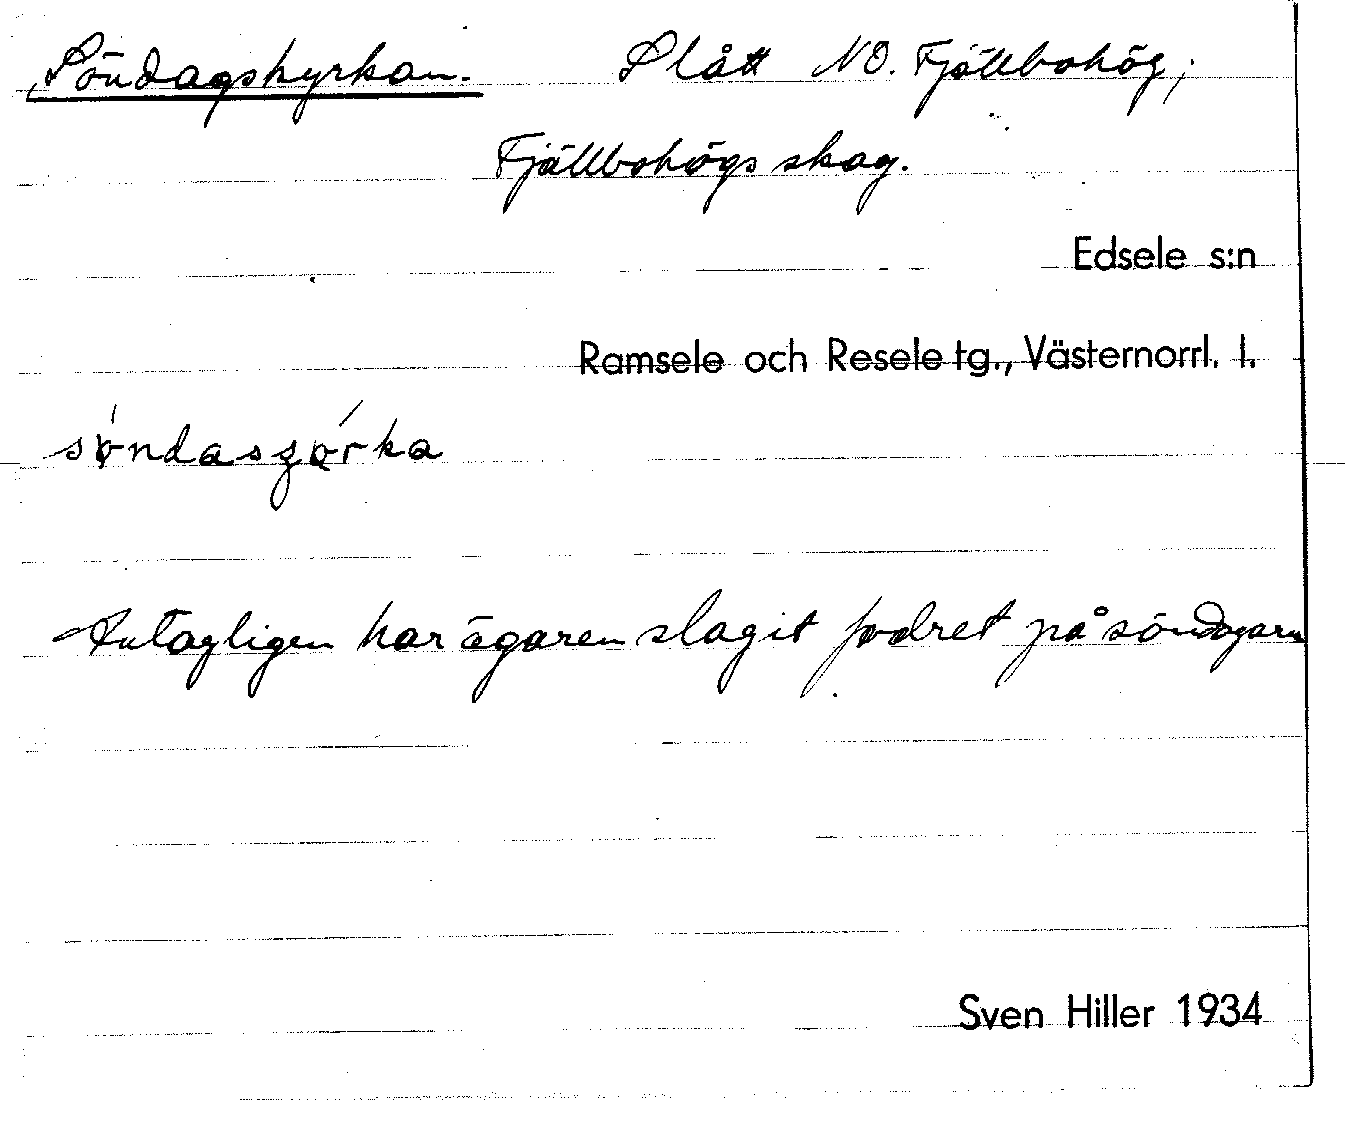 Söndagskyrkan. Slått NO. Fjällbohög,
Fjällbohögs skog.
Edsele s:n
Ramsele och Resele tg., Västernorrl. l.
söndaszørka
Antagligen har ägaren slagit fodret på söndagarn
Sven Hiller 1934